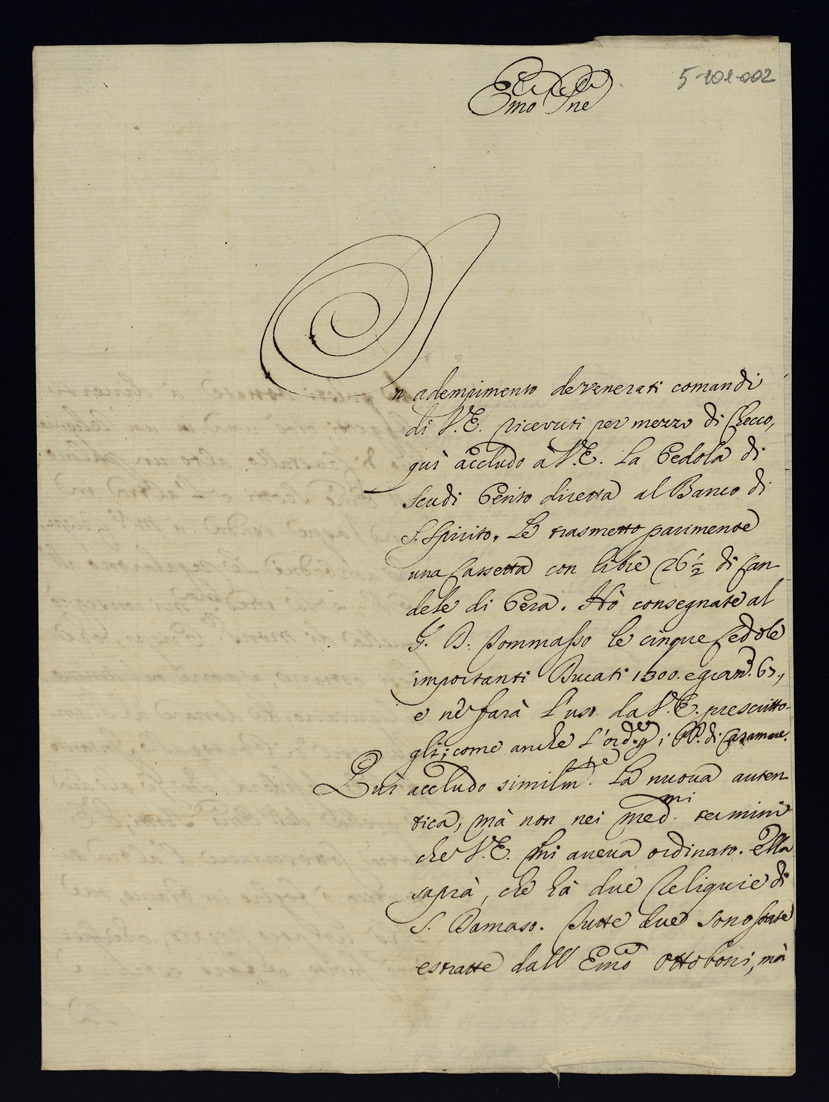 5-101-002
Emo Sne
In adempimento de venerati comandi
di V.E. ricevuti per mezzo di Checco,
quì accludo à V.E. la Cedola di
scudi Cento diretta al Banco di
S. Spirito. Le trasmetto parimente
una Cassetta con libre 26 1/2 di Can-
dele di Cera. Hò consegnate al
S. D. Tommasso le cinque Cedole
importanti Ducati 1300. e gran. 63.,
e ne farà l'uso da V.E. prescritto-
gli; come anche l'ord.e p i PP. di
Quì accludo similmte. la nuova auten-
tica, mà non nei med.mi termini
che V.E. mi aveva ordinato. Ella
saprà, che hà due Reliquie di
S. Damaso. Tutte due sono state
estratte dall' Emo Ottoboni, mà